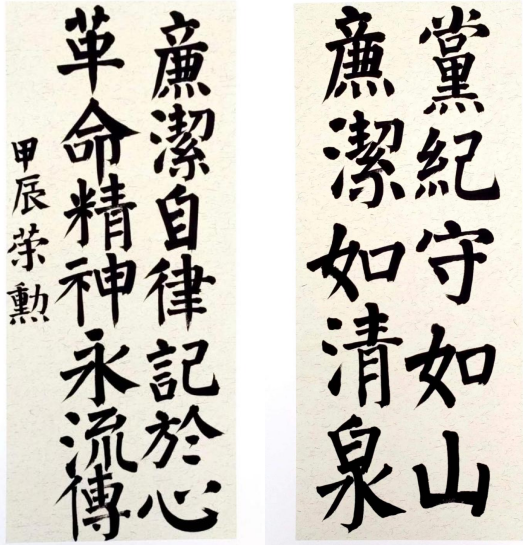 黨紀守如山
廉潔如清泉
廉潔自律記於心
革命精神永流傳
甲辰荣勳